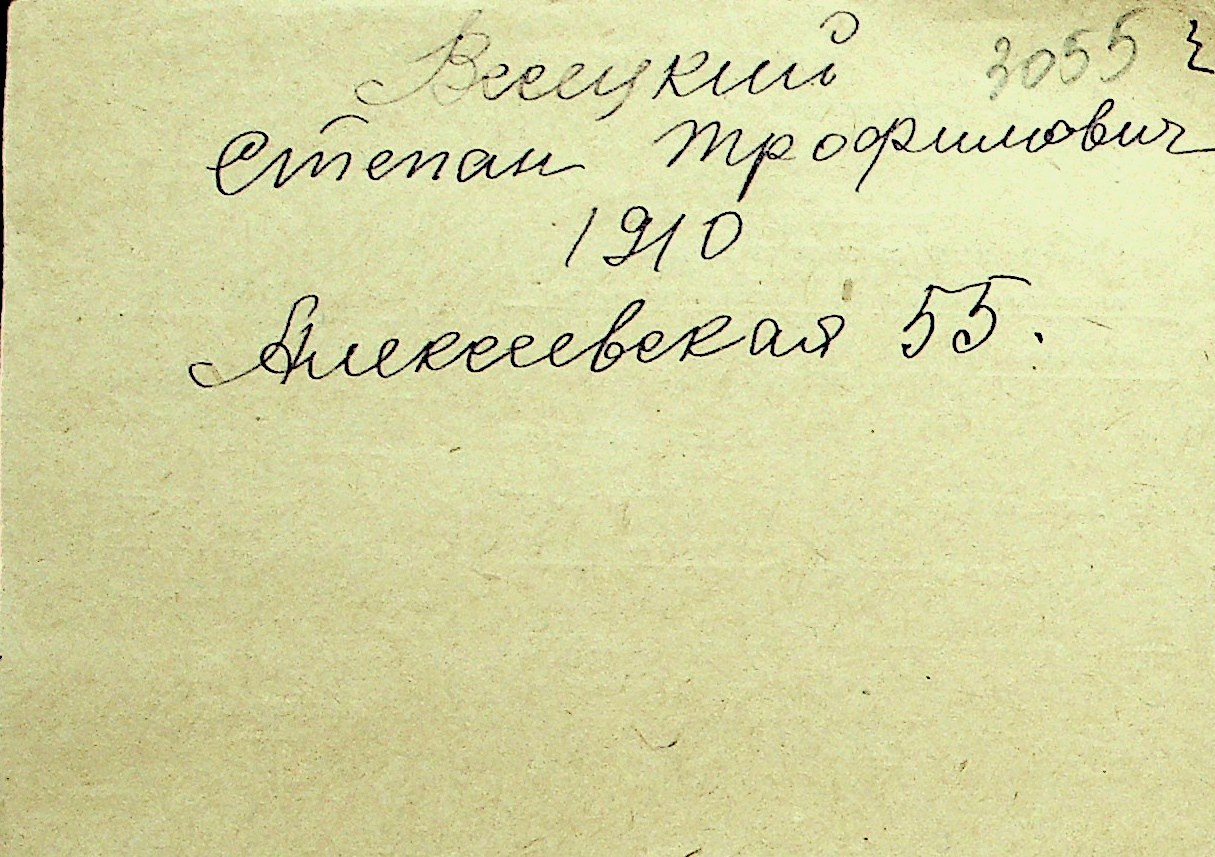 3055
Степан Трофимович
1910
Алексеевская 55.